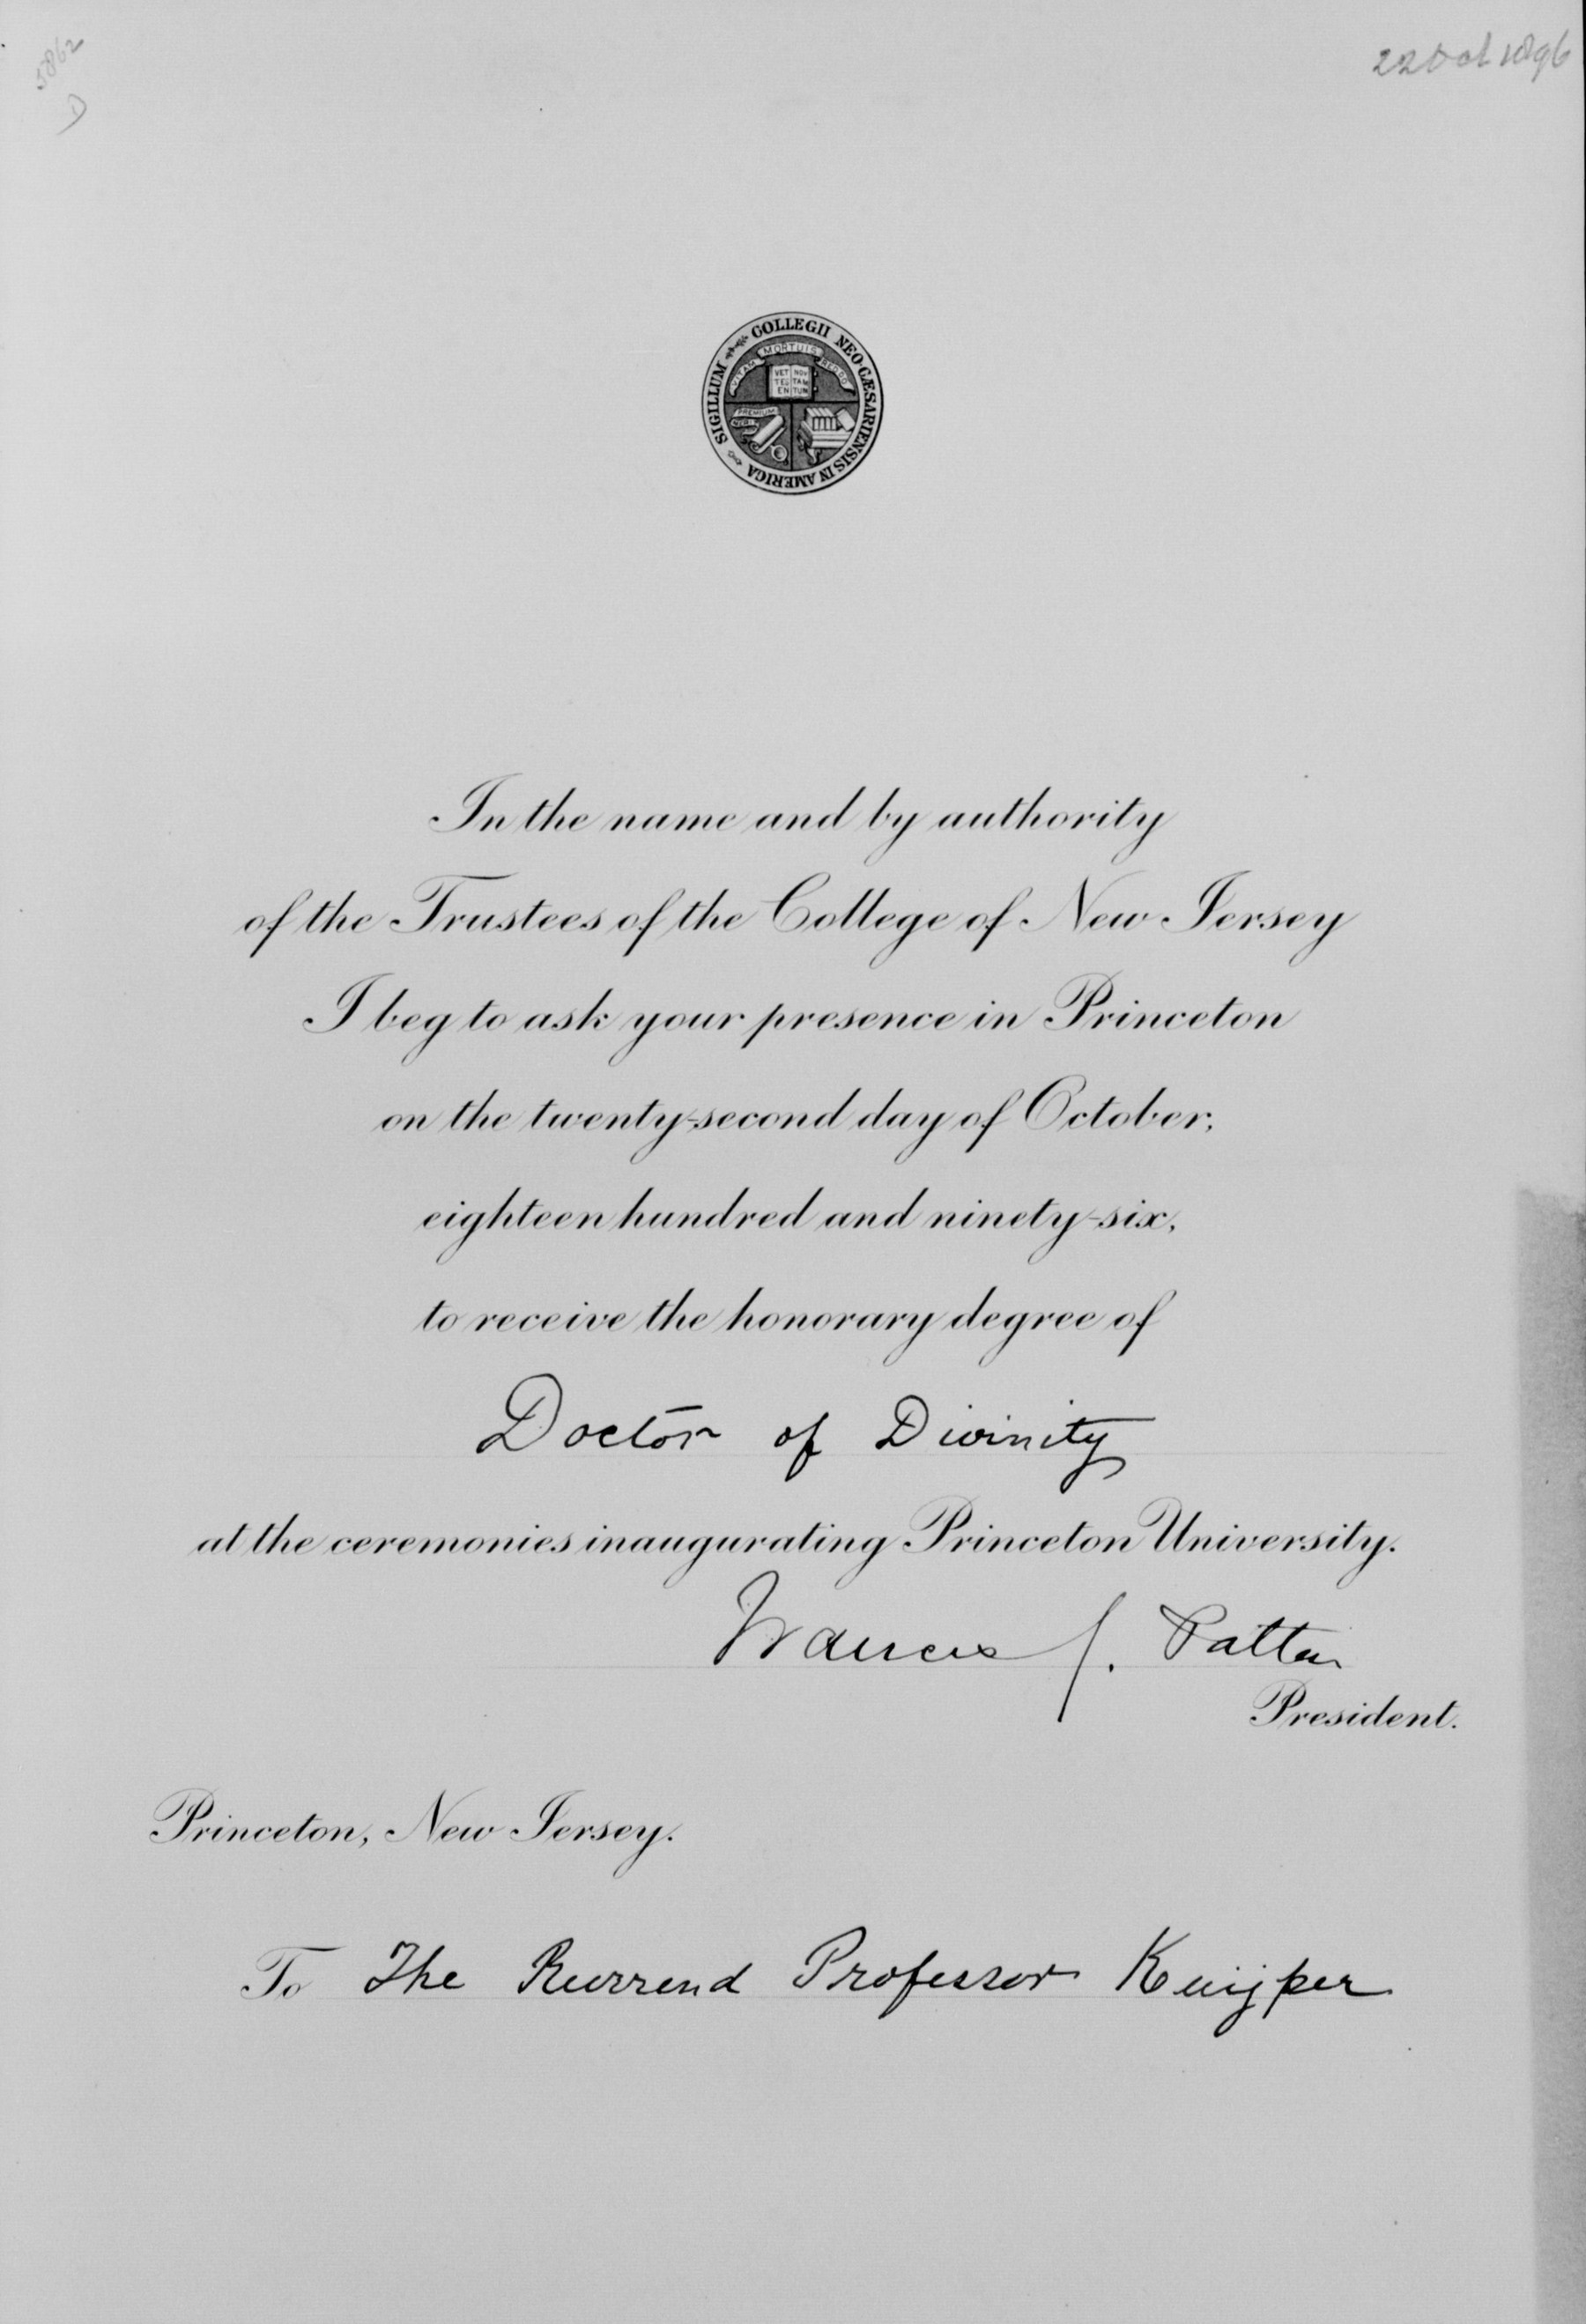 5862
D
22 Oct 1896
SIGILLUM COLLEGII NEO-CÆSARIENSIS IN AMERICA
VITAM MORTUIS REDDO
VET NOV
TES TAM
EN TUM
PREMIUM
In the name and by authority
of the Trustees of the College of New Jersey
I beg to ask your presence in Princeton
on the twenty-second day of October,
eighteen hundred and ninety-six,
to receive the honorary degree of
Doctor of Divinity
at the ceremonies inaugurating Princeton University.
Francis J. Patton
President.
Princeton, New Jersey.
To The Reverend Professor Kuijper